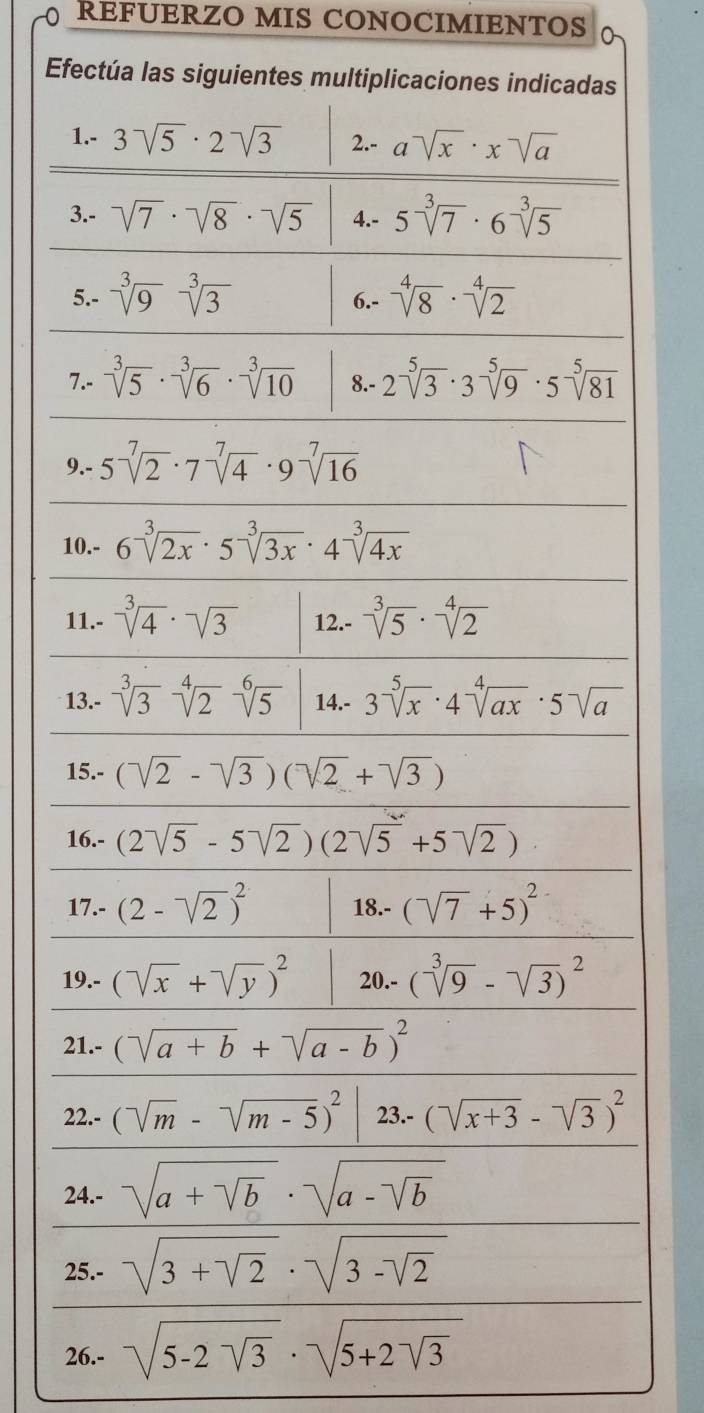 REFUERZO MIS CONOCIMIENTOS
Efectúa las siguientes multiplicaciones indicadas
1.- 3√5 · 2√3 2.- a√x · x√a
3.- √7 · √8 · √5 4.- 5∛7 · 6∛5
5.- ∛9 ∛3 6.- ∜8 · ∜2
7.- ∛5 · ∛6 · ∛10 8.- 2⁵√3 · 3⁵√9 · 5⁵√81
9.- 5⁷√2 · 7⁷√4 · 9⁷√16
10.- 6∛(2x) · 5∛(3x) · 4∛(4x)
11.- ∛4 · √3 12.- ∛5 · ∜2
13.- ∛3 ∜2 ⁶√5 14.- 3⁵√x · 4∜(ax) · 5√a
15.- (√2 - √3) (√2 + √3)
16.- (2√5 - 5√2) (2√5 +5√2)
17.- (2 - √2)² 18.- (√7 + 5)²
19.- (√x + √y)² 20.- (∛9 - √3)²
21.- (√(a + b) + √(a - b))²
22.- (√m - √(m - 5))² 23.- (√(x+3) - √3)²
24.- √(a + √b) · √(a - √b)
25.- √(3 + √2) · √(3 - √2)
26.- √(5-2√3) · √(5+2√3)